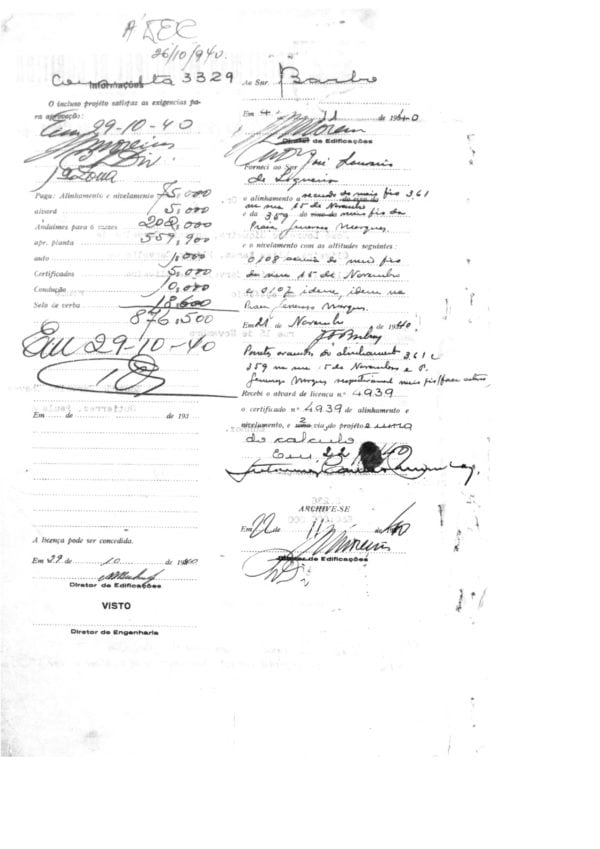 A' DEC
26/10/940.
Consulta 3329
Informações
O incluso projéto satisfaz as exigencias pa-
ra aprovação:
Em 29-10-40
Moreira
Div.
1ª Zona
Paga: Alinhamento e nivelamento 75,000
alvará 5,000
Andaimes para 6 mezes 208,000
apr. planta 559,900
auto 1,000
Certificados 5,000
Condução 10,000
Selo de verba 18,600
876,500
Em 29-10-40
Em de de 193
A licença pode ser concedida.
Em 29 de 10 de 1940
Diretor de Edificações
VISTO
Diretor de Engenharia
Ao Snr.
Em 4 11 1940
Moreira
Diretor de Edificações
Forneci ao Snr José Loureiro
de Siqueira
o alinhamento a recuado do meio fio 3,61
na rua 15 de Novembro
e da 3,59 do meio fio da
Praça Generoso Marques.
e o nivelamento com as altitudes seguintes:
0,108 acima do meio fio
da rua 15 de Novembro
e 0,107 idem, idem na
Praça Generoso Marques.
Em 21 de Novembro de 1940.
3,61 e
359 na rua 15 de Novembro e P.
Generoso Marques respectivamente meio fio/face
Recebi o alvará de licença n° 4939
o certificado n° 4939 de alinhamento e
nivelamento, e 2ª via do projéto e uma
de calculo
Em, 22 40
ARCHIVE-SE
Em 22 de 11 de 40
Moreira
Diretor de Edificações